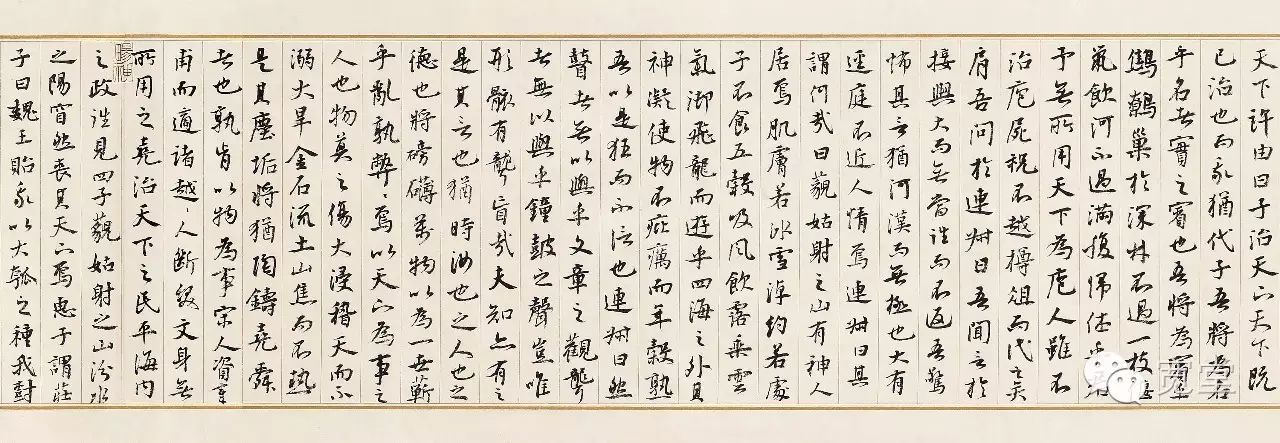 天下許由曰子治天下天下既
已治也而我猶代子吾將為名
乎名者實之賓也吾將為賓乎
鷦鷯巢於深林不過一枝偃
鼠飲河不過滿腹歸休乎君
予無所用天下為庖人雖不
治庖屍祝不越樽俎而代之矣
肩吾問於連叔曰吾聞言於
接輿大而無當往而不返吾驚
怖其言猶河漢而無極也大有
逕庭不近人情焉連叔曰其
謂何哉曰藐姑射之山有神人
居焉肌膚若冰雪淖約若處
子不食五穀吸風飲露乘雲
氣御飛龍而遊乎四海之外其
神凝使物不疵癘而年穀熟
吾以是狂而不信也連叔曰然
瞽者無以與乎文章之觀聾
者無以與乎鐘鼓之聲豈唯
形骸有聾盲哉夫知亦有之
是其言也猶時汝也之人也之
德也將磅礴萬物以為一世蘄
乎亂孰弊〻焉以天下為事之
人也物莫之傷大浸稽天而不
溺大旱金石流土山焦而不熱
是其塵垢將猶陶鑄堯舜
者也孰肯以物為事宋人資章
甫而適諸越〻人斷髮文身無
所用之堯治天下之民平海內
之政往見四子藐姑射之山汾水
之陽窅然喪其天下焉惠子謂莊
子曰魏王貽我以大瓠之種我樹
宽堂